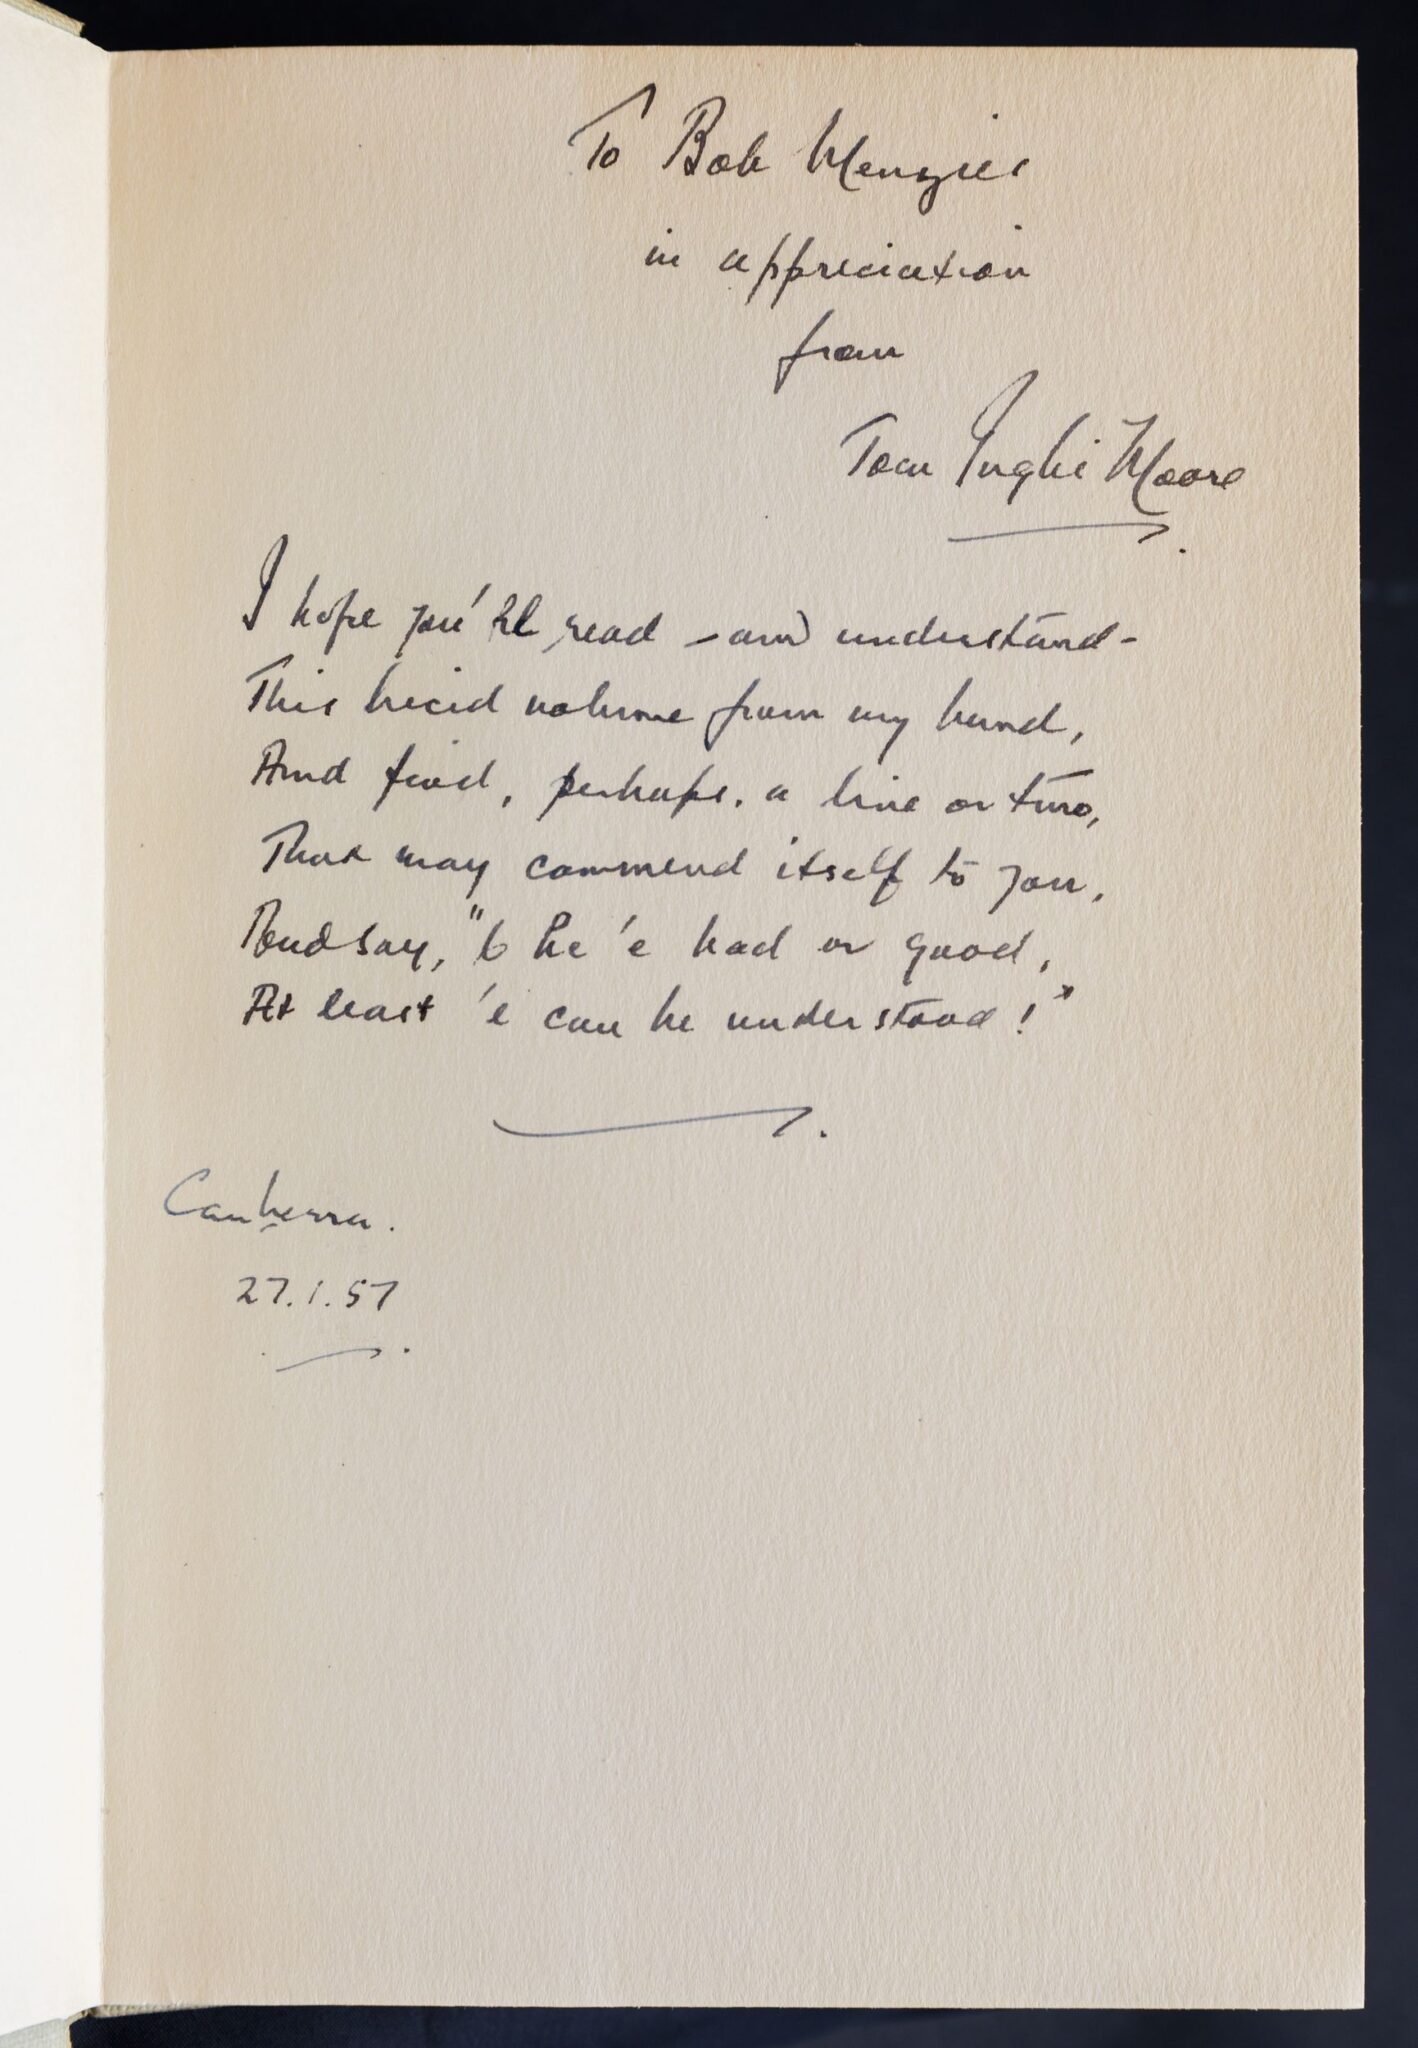 To Bob Menzies
in appreciation
from
Tom Inglis Moore
I hope you'll read – and understand –
This lucid volume from my hand,
And find, perhaps, a line or two,
That may commend itself to you,
And say, " be 'e bad or good,
At least 'e can be understood!"
Canberra.
27.1.57